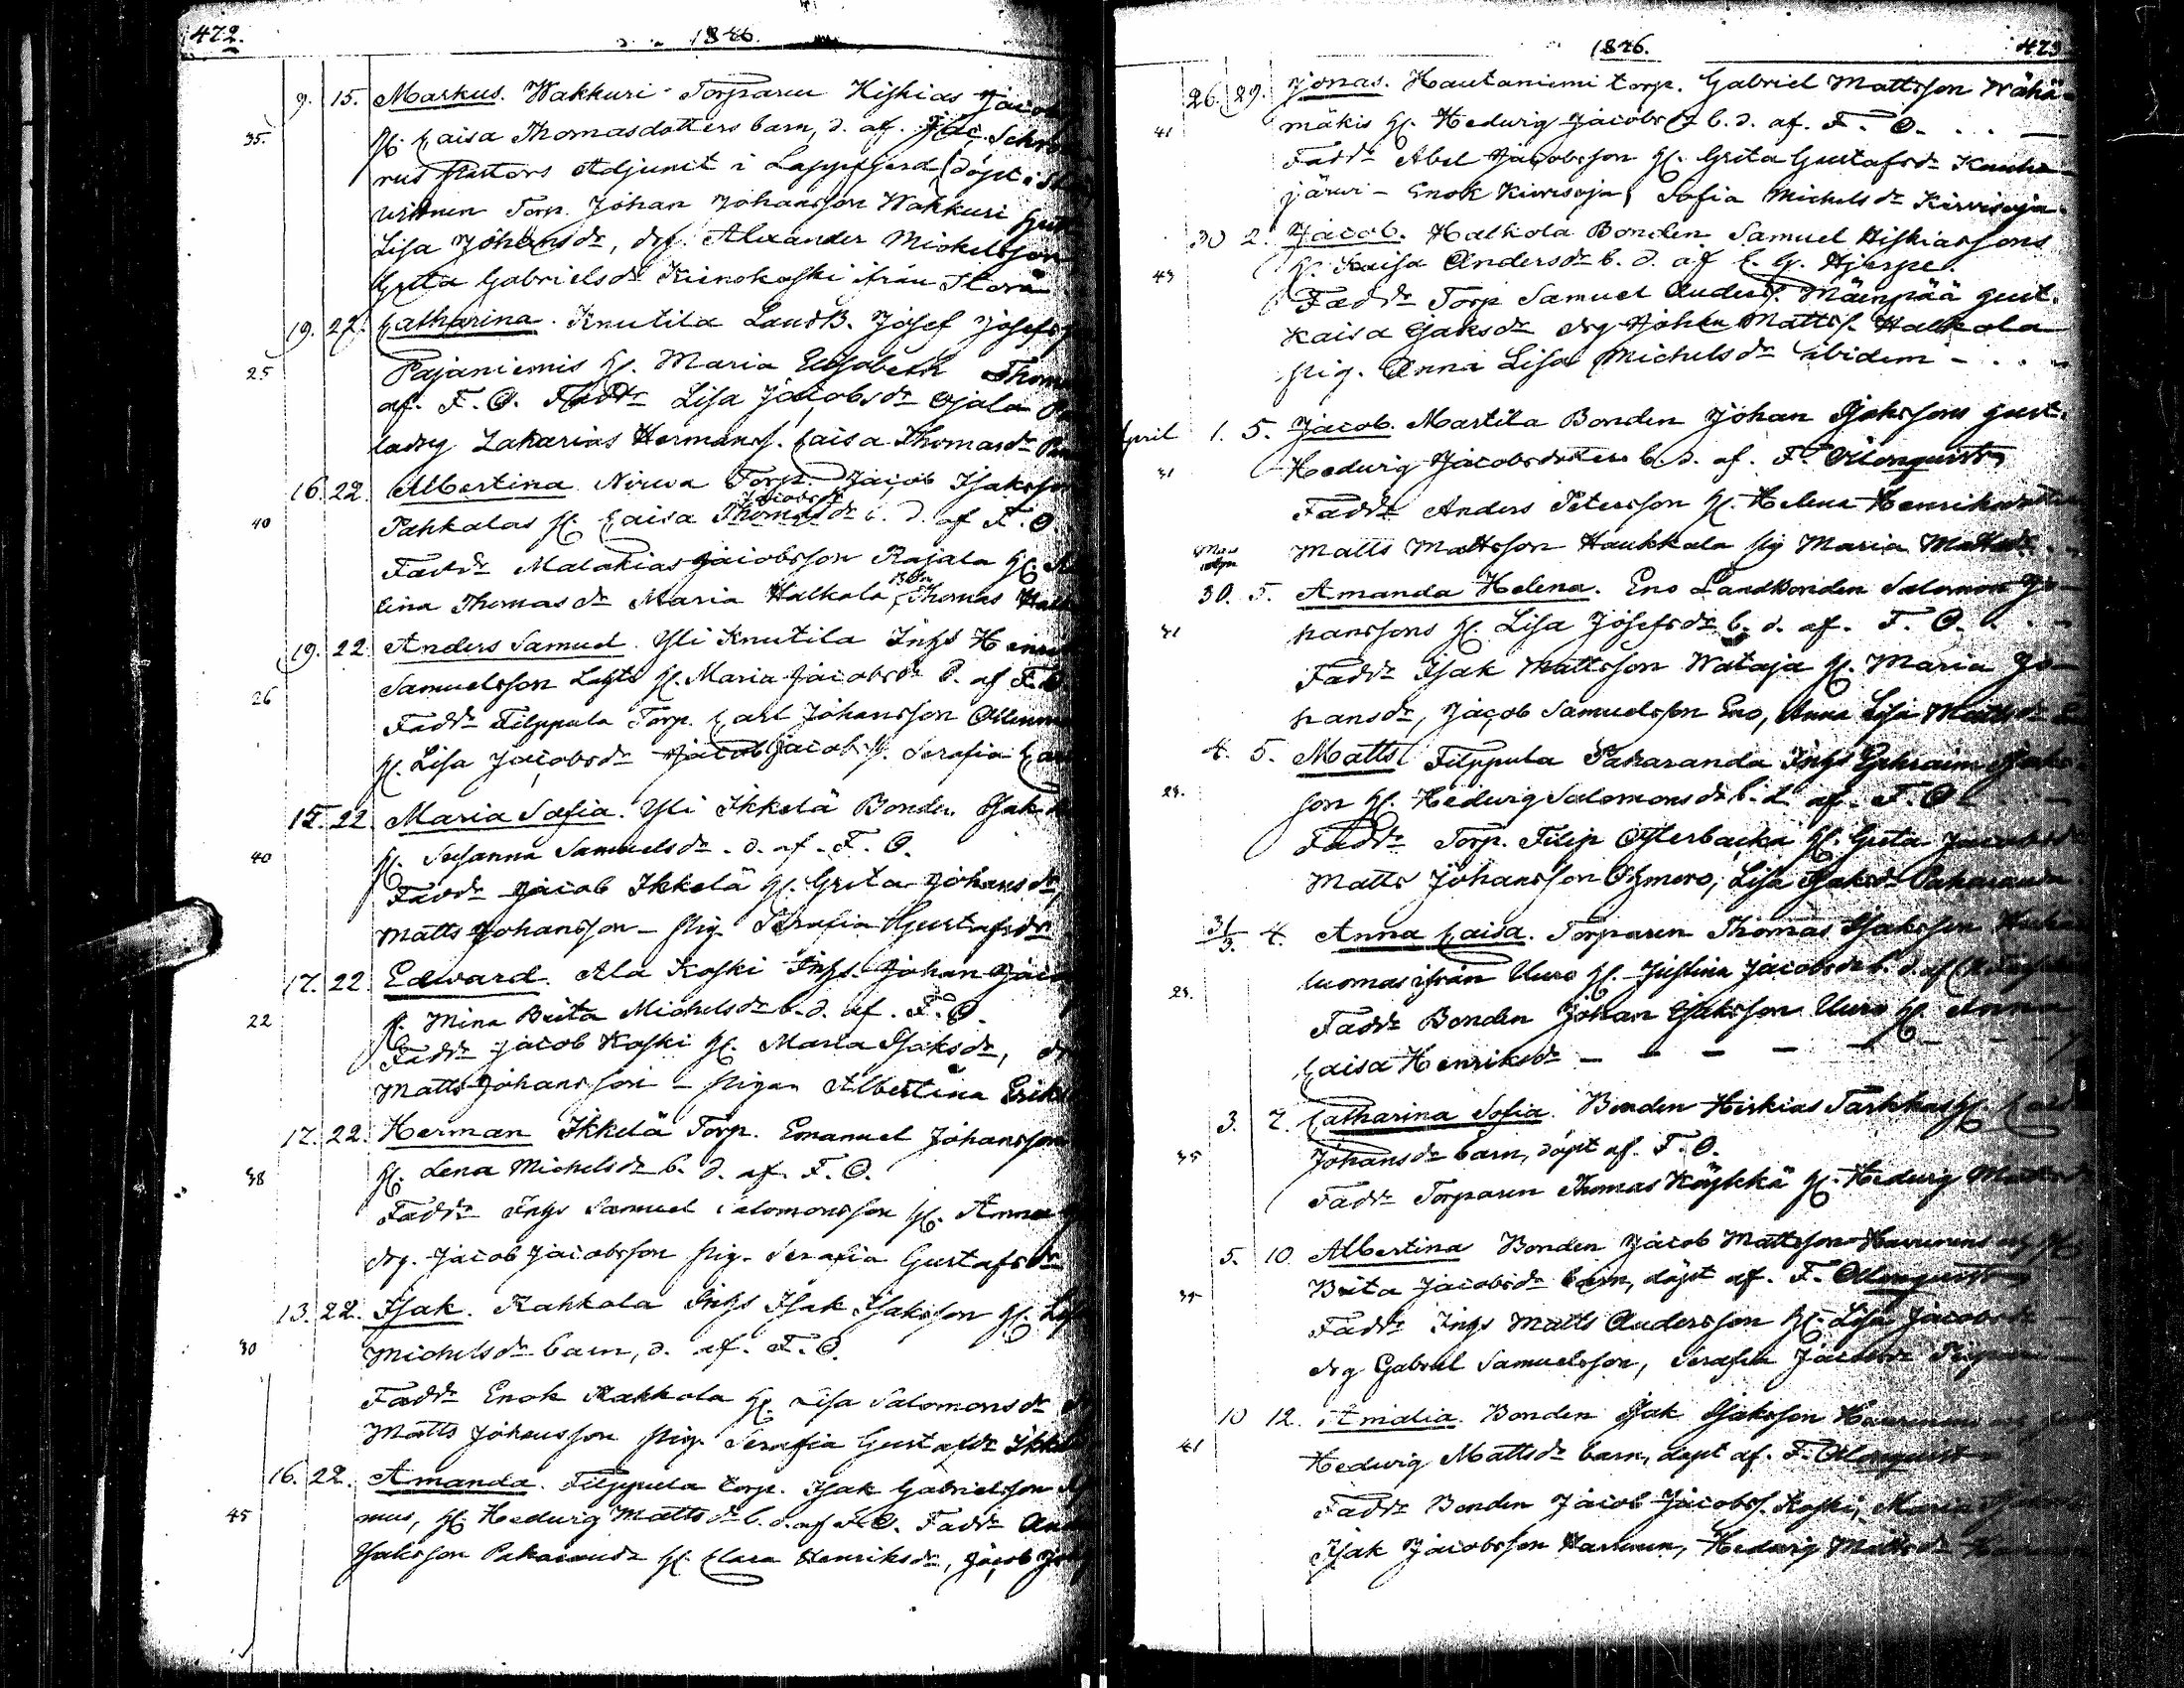 472.
1846.
9. 15. Markus. Wakkuri Torparen Hiskias Jacob
35. H. Caisa Thomasdotters barn, d. af. Jac. Schro
rus Pastors Adjunct i Lappfjerd (döpt i
Torp. Johan Johansson Wakkuri
Lisa Johansdr, drg. Alexander Michelsson
Greta Gabrielsdr ifrån Storå
19. 22. Catharina. Knutila LandB. Josef Josefs
25 Pajaniemis H. Maria Elisabeth Thom
af. F. O. Faddr Lisa Jacobsdr Ojala
ladrg Zakarias Hermanss. Caisa Thomasdr
16. 22. Albertina Nirva Torp. Jacob Isaksson
Jacobsdr
40 Pahkalas H. Caisa Thomasdr b. d. af F. O
Faddr Malakias Jacobsson Rajala H.
lina Thomasdr Maria Halkola, Thomas
19. 22. Anders Samuel. Yli Knutila Inhs Henri
26 Samuelsson H. Maria Jacobsdr b. af F. O
Faddr Filppula Torp. Carl Johansson
H. Lisa Jacobsdr Jacob Jacobss. Serafia
15. 22. Maria Sofia. Yli Ikkelä Bonden Isak
40 H. Susanna Samuelsdr. d. af. F. O.
Faddr Jacob Ikkelä H. Greta Johansdr,
Matts Johansson - pig. Serafia Gustafsdr
17. 22. Edward. Ala Koski Inhs. Johan Jaco
22 H. Mina Brita Michelsdr b. d. af. F. O.
Faddr Jacob Koski H. Maria Isaksdr,
Matts Johansson - pigan Albertina Eriks
17. 22. Herman Ikkelä Torp. Emanuel Johansson
38 H. Lena Michelsdr b. d. af. F. O.
Faddr Inhs Samuel Salomonsson H. Anna
drg. Jacob Jacobsson pig. Serafia Gustafsdr
13. 22. Isak. Kahkola Inhs Isak Isaksson H.
30 Michelsdr barn, d. af. F. O.
Faddr Enok Kakkola H. Lisa Salomonsdr
Matts Johansson pig. Serafia Gustafsdr
16. 22. Amanda. Filppula torp. Isak Gabrielsson
45 mus, H. Hedwig Mattsdr b. d. af F. O. Faddr
Isaksson H. Clara Henriksdr, Jacob
1846.
473
26. 29. Jonas. Hautaniemi torp. Gabriel Mattsson Wähä-
41 mäkis H. Hedwig Jacobsdr b. d. af. F. O.
Faddr Abel Jacobsson H. Greta Gustafsdr Kauha
järvi - Enok Kirvesoja, Sofia Michelsdr
30 2. Jacob. Halkola Bonden Samuel Hiskiassons
43 H. Kaisa Andersdr b. d. af C. G. Hjerpe.
Faddr Torp Samuel Anderss. Mäenpää gust.
Kaisa Isaksdr drg Johan Mattss. Halkola
pig. Anna Lisa Michelsdr ibidem
April 1. 5. Jacob. Martila Bonden Johan Isakssons gust.
31 Hedwig Jacobsdotters b. d. af. F. Ollonquist
Faddr Anders Petersson H. Helena
Matts Mattsson Haukkala pig Maria
30. 5. Amanda Helena. Eno Landbonden Salomon Jo-
31 hanssons H. Lisa Josefsdr b. d. af. F. O.
Faddr Isak Mattsson Wataja H. Maria Jo-
hansdr, Jacob Samuelsson Eno, Anna Lisa Mattsdr
4. 5. Matts Filppula Pakaranda Inhs Ephraim Isaks
24. son H. Hedwig Salomonsdr b. d. af. F. O
Faddr Torp. Filip Österbacka H. Greta Jacobsdr
Matts Johansson, Lisa Isaksdr Pakaranda
31/3 4. Anna Caisa. Torparen Thomas Isaksson
24. luomas ifrån Uuro H. Justina Jacobsdr b. d. af
Faddr Bonden Johan Isaksson Uuro H. Anna
Caisa Henriksdr
3. 7. Catharina Sofia. Bonden Hiskias H.
35 Johansdr barn, döpt af. F. O.
Faddr Torparen Thomas Köykkä H. Hedwig
5. 10. Albertina Bonden Jacob Mattsson
34 Brita Jacobsdr barn, döpt af. F. Ollonquist
Faddr Inhs Matts Andersson H. Lisa Jacobsdr
drg Gabriel Samuelsson, Serafia
10 12. Amalia. Bonden Isak Isaksson
41 Hedwig Mattsdr barn, döpt af. F. Ollonquist
Faddr Bonden Jacob Jacobss. Koski, Maria
Isak Jacobsson, Hedwig Mattsdr